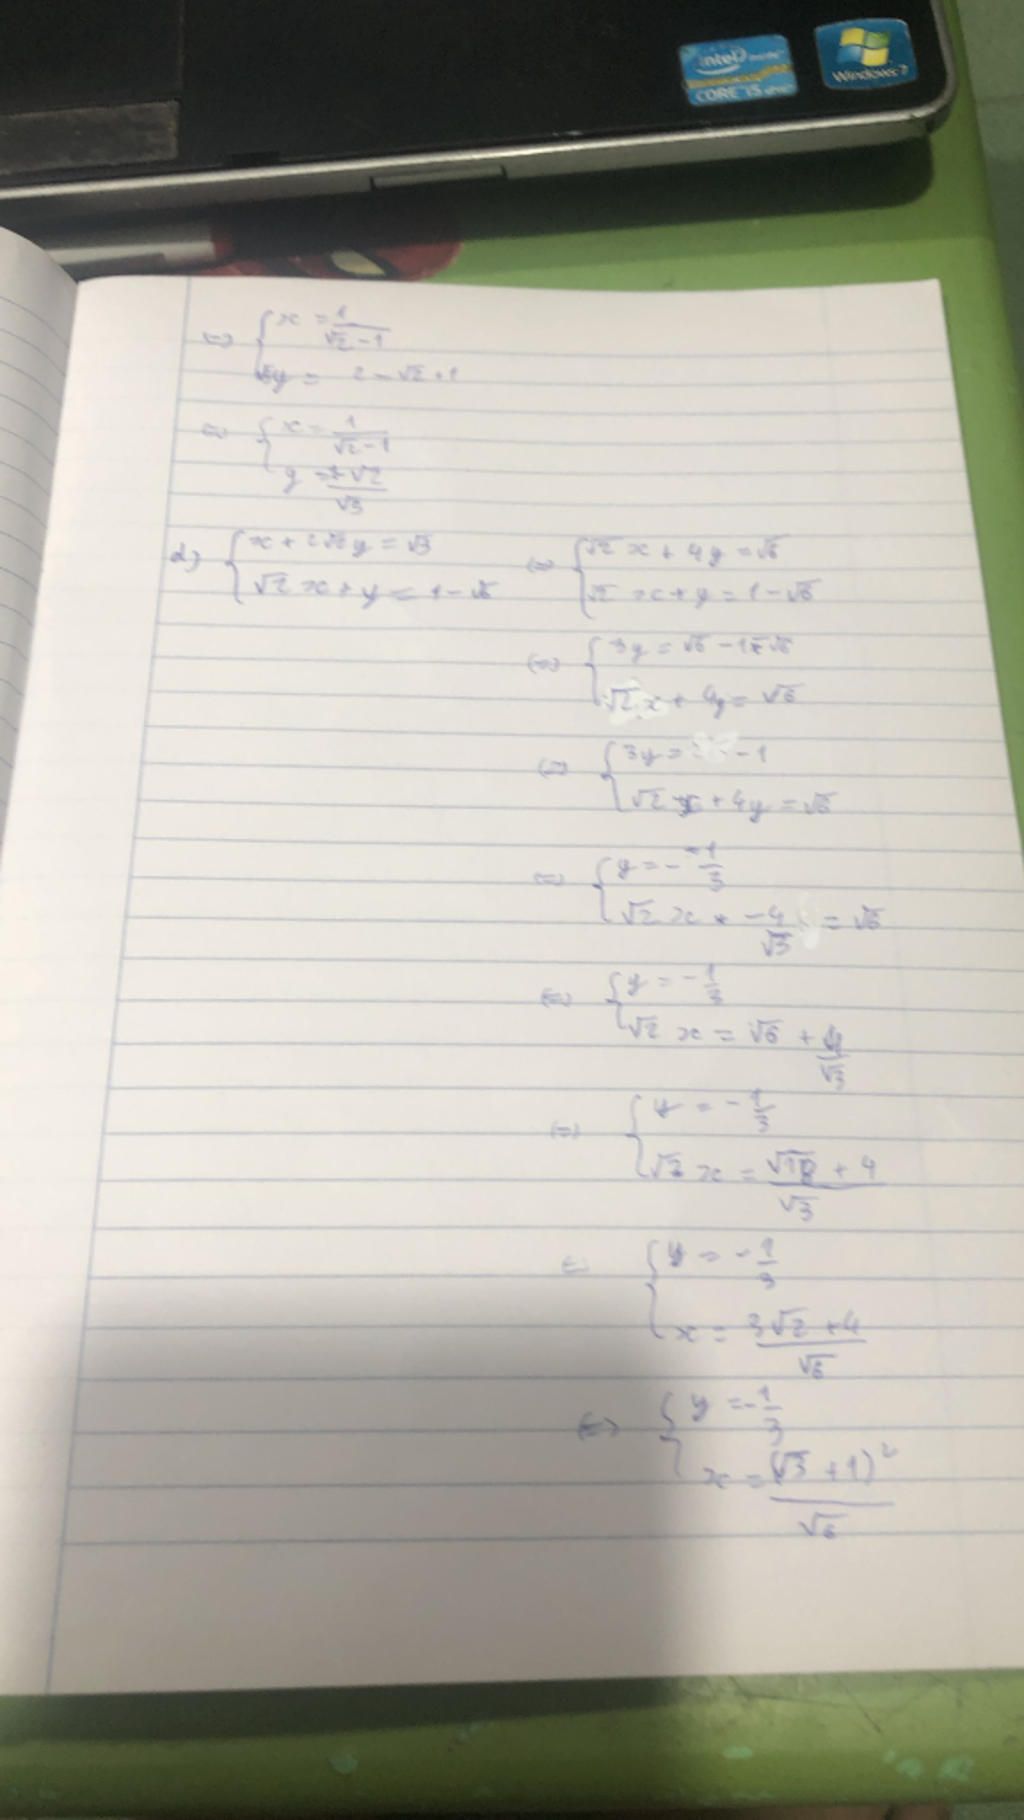 intel inside
CORE i5
Windows 7
⇔ { x = 1/(√2 - 1)
√3y = 2 - √2 + 1
⇔ { x = 1/(√2 - 1)
/√3
d) { x + 2√2y = √3 ⇔ { √2x + 4y = √6
√2x + y = 1 - √6 √2x + y = 1 - √6
⇔ { 3y = √6 - 1 + √6
√2x + 4y = √6
⇔ { 3y = - 1
√2x + 4y = √6
⇔ { y = - 1/3
√2x + -4/√3 = √6
⇔ { y = - 1/3
√2x = √6 + 4/√3
⇔ { y = - 1/3
√2x = (√18 + 4)/√3
⇔ { y = - 1/3
x = (3√2 + 4)/√6
⇔ { y = - 1/3
x = (√3 + 1)²/√6